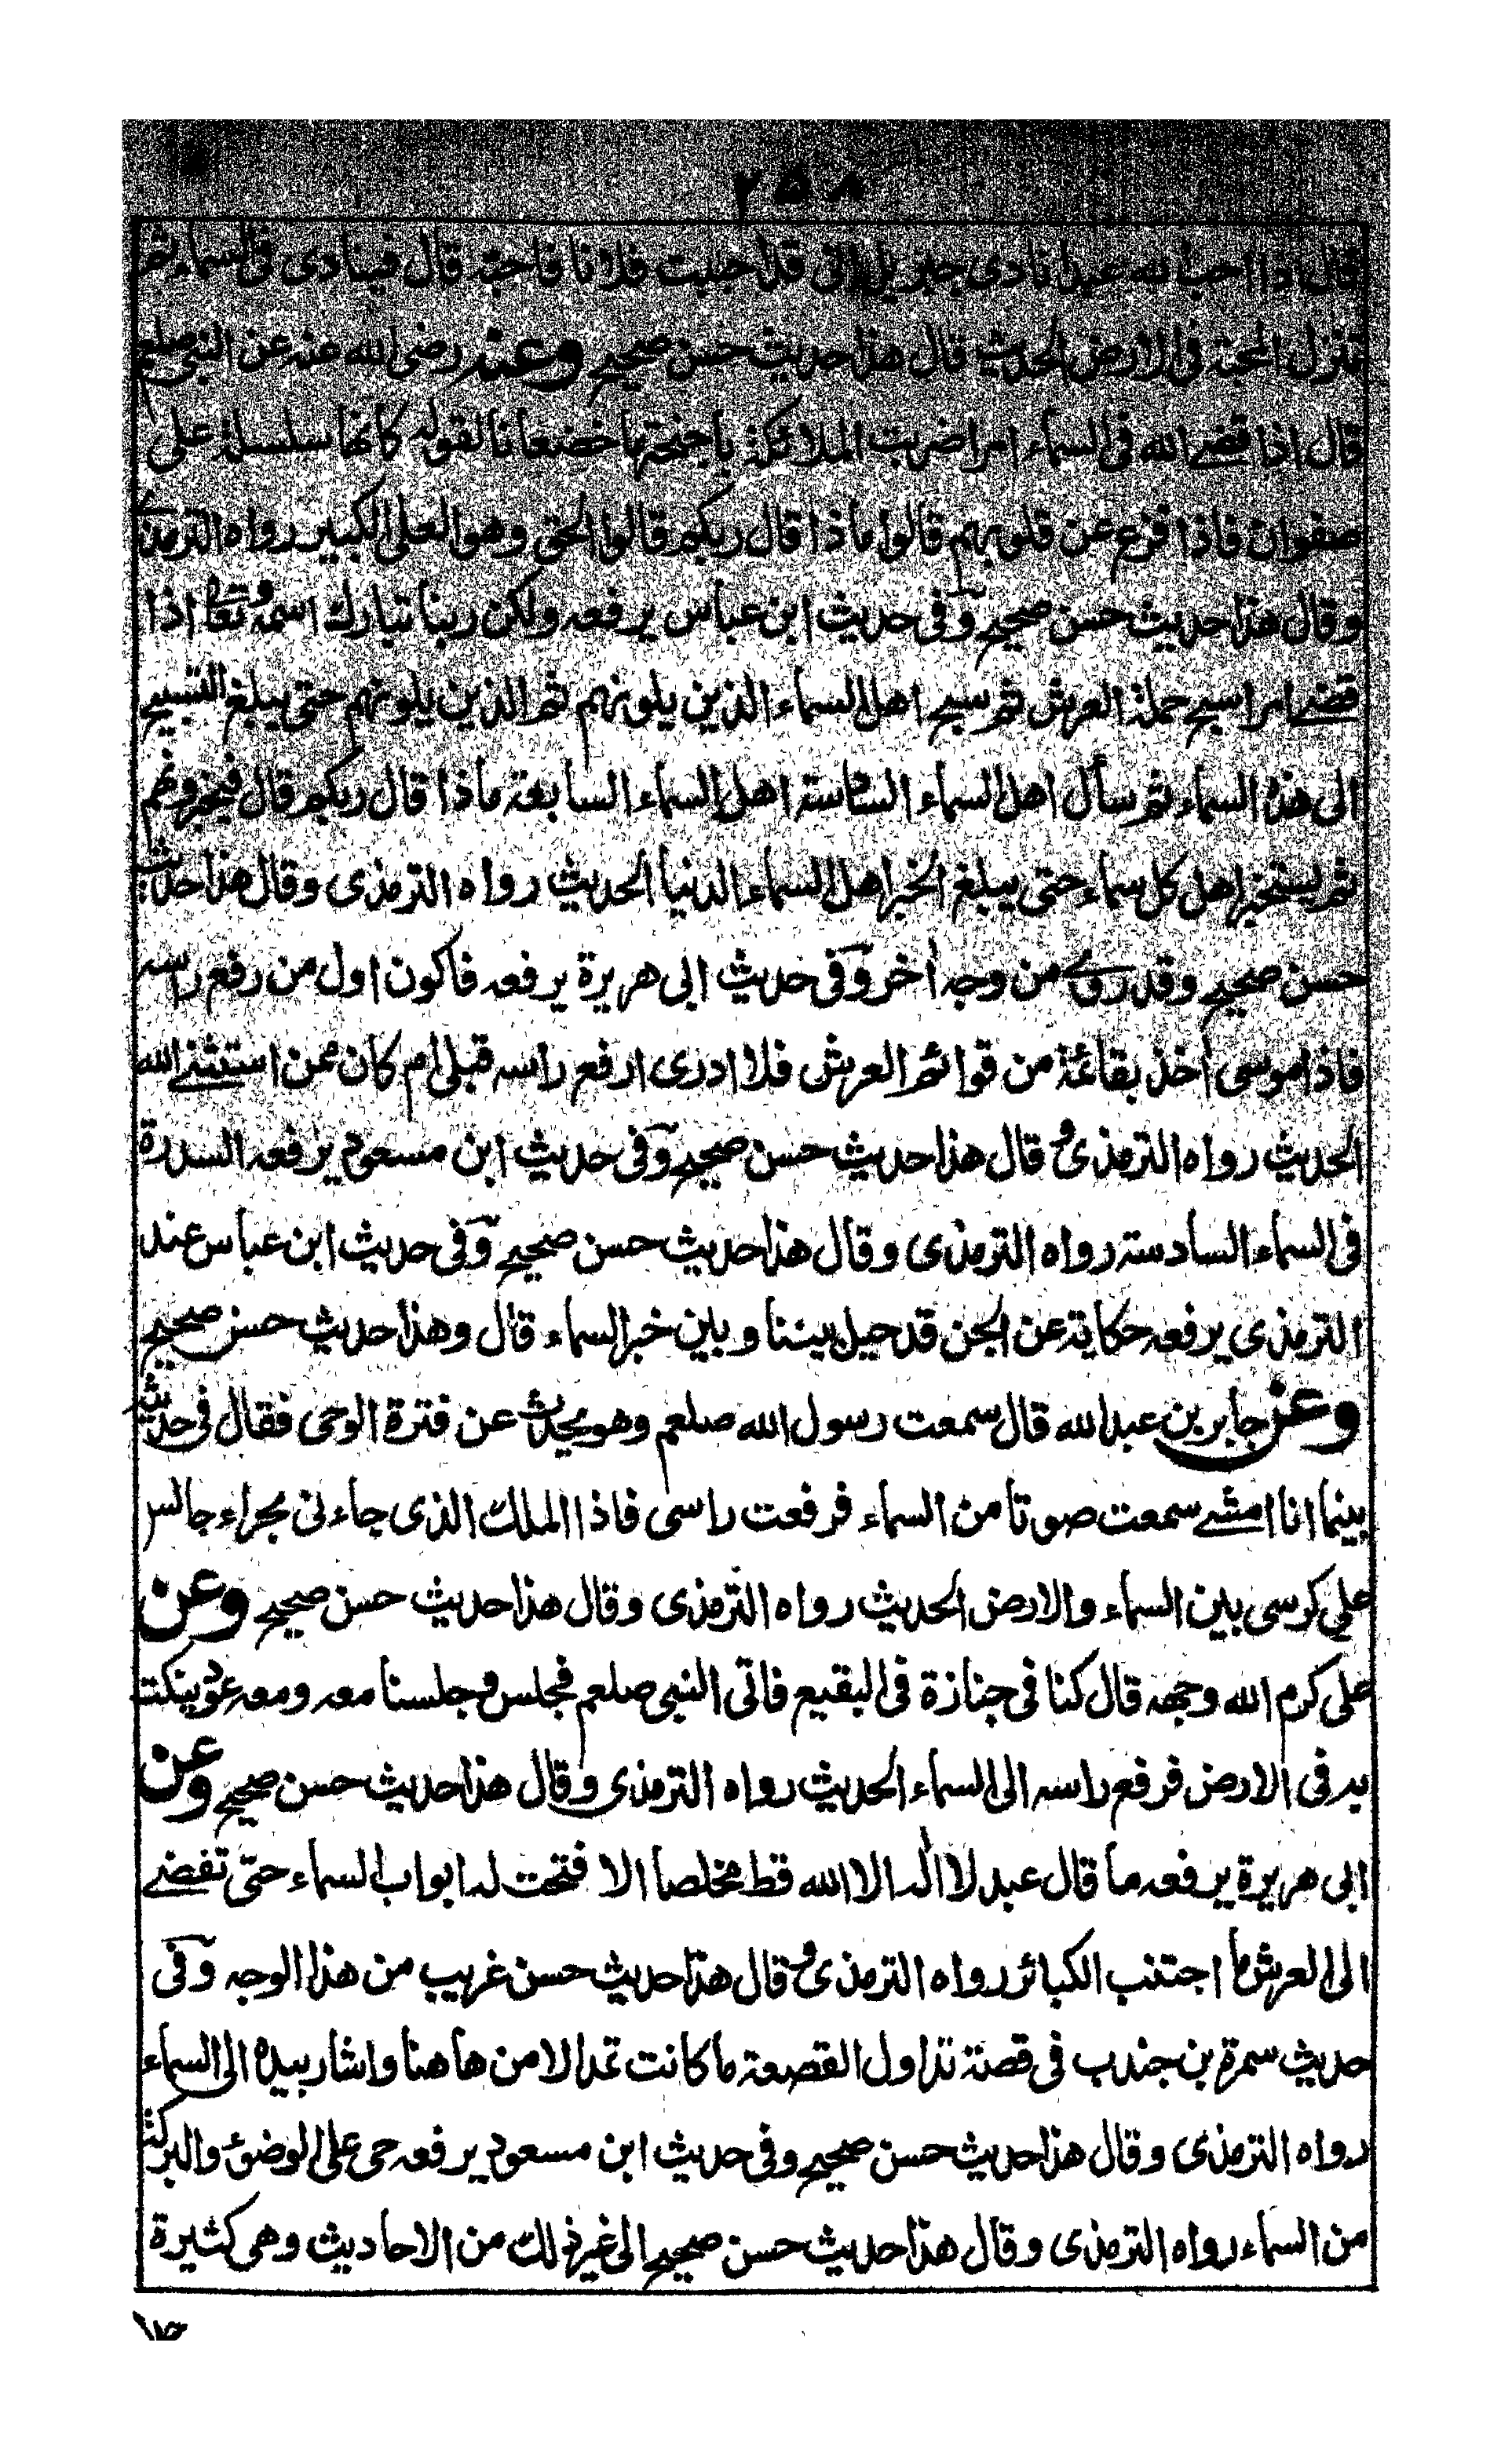 ٢٥٨
قال اذا احب الله عبدا نادى جبريل انى قد احببت فلانا فاحبه قال فينادى فى السماء ثم
تنزل المحبة فى الارض الحديث قال هذا حديث حسن صحيح وعنه رضى الله عنه عن النبى صلعم
قال اذا قضے الله فى السماء امرا ضربت الملائكة باجنحتها خضعانا لقوله كانها سلسلة على
صفوان فاذا فزع عن قلوبهم قالوا ماذا قال ربكم قالوا الحق وهو العلى الكبير رواه الترمذى
وقال هذا حديث حسن صحيح وفى حديث ابن عباس يرفعه ولكن ربنا تبارك اسمه وتعالى اذا
قضے امرا سبح حملة العرش ثم سبح اهل السماء الذين يلونهم ثم الذين يلونهم حتى يبلغ التسبيح
الى هذه السماء ثم سأل اهل السماء السادسة اهل السماء السابعة ماذا قال ربكم قال فيخبرونهم
ثم يستخبر اهل كل سماء حتى يبلغ الخبر اهل السماء الدنيا الحديث رواه الترمذى وقال هذا حديث
حسن صحيح وقد روے من وجه اخر وفى حديث ابى هريرة يرفعه فاكون اول من رفع راسه
فاذا موسى اخذ بقائمة من قوائم العرش فلا ادرى ارفع راسه قبلى ام كان ممن استثنے الله
الحديث رواه الترمذى و قال هذا حديث حسن صحيح وفى حديث ابن مسعود يرفعه السدرة
فى السماء السادسة رواه الترمذى وقال هذا حديث حسن صحيح وفى حديث ابن عباس عند
الترمذى يرفعه حكاية عن الجن قد حيل بيننا وبين خبر السماء قال وهذا حديث حسن صحيح
وعن جابر بن عبد الله قال سمعت رسول الله صلعم وهو يحدث عن فترة الوحى فقال فى حديثه
بينما انا امشے سمعت صوتا من السماء فرفعت راسى فاذا الملك الذى جاءنى بحراء جالس
على كرسى بين السماء والارض الحديث رواه الترمذى وقال هذا حديث حسن صحيح وعن
على كرم الله وجهه قال كنا فى جنازة فى البقيع فاتى النبى صلعم فجلس وجلسنا معه ومعه عود ينكت
به فى الارض فرفع راسه الى السماء الحديث رواه الترمذى وقال هذا حديث حسن صحيح وعن
ابى هريرة يرفعه ما قال عبد لا اله الا الله قط مخلصا الا فتحت له ابواب السماء حتى تفضے
الى العرش ما اجتنب الكبائر رواه الترمذى و قال هذا حديث حسن غريب من هذا الوجه وفى
حديث سمرة بن جندب فى قصة تداول القصعة ما كانت تمد الا من هاهنا واشار بيده الى السماء
رواه الترمذى وقال هذا حديث حسن صحيح وفى حديث ابن مسعود يرفعه حى على الوضوء والبركة
من السماء رواه الترمذى وقال هذا حديث حسن صحيح الى غير ذلك من الاحاديث وهى كثيرة